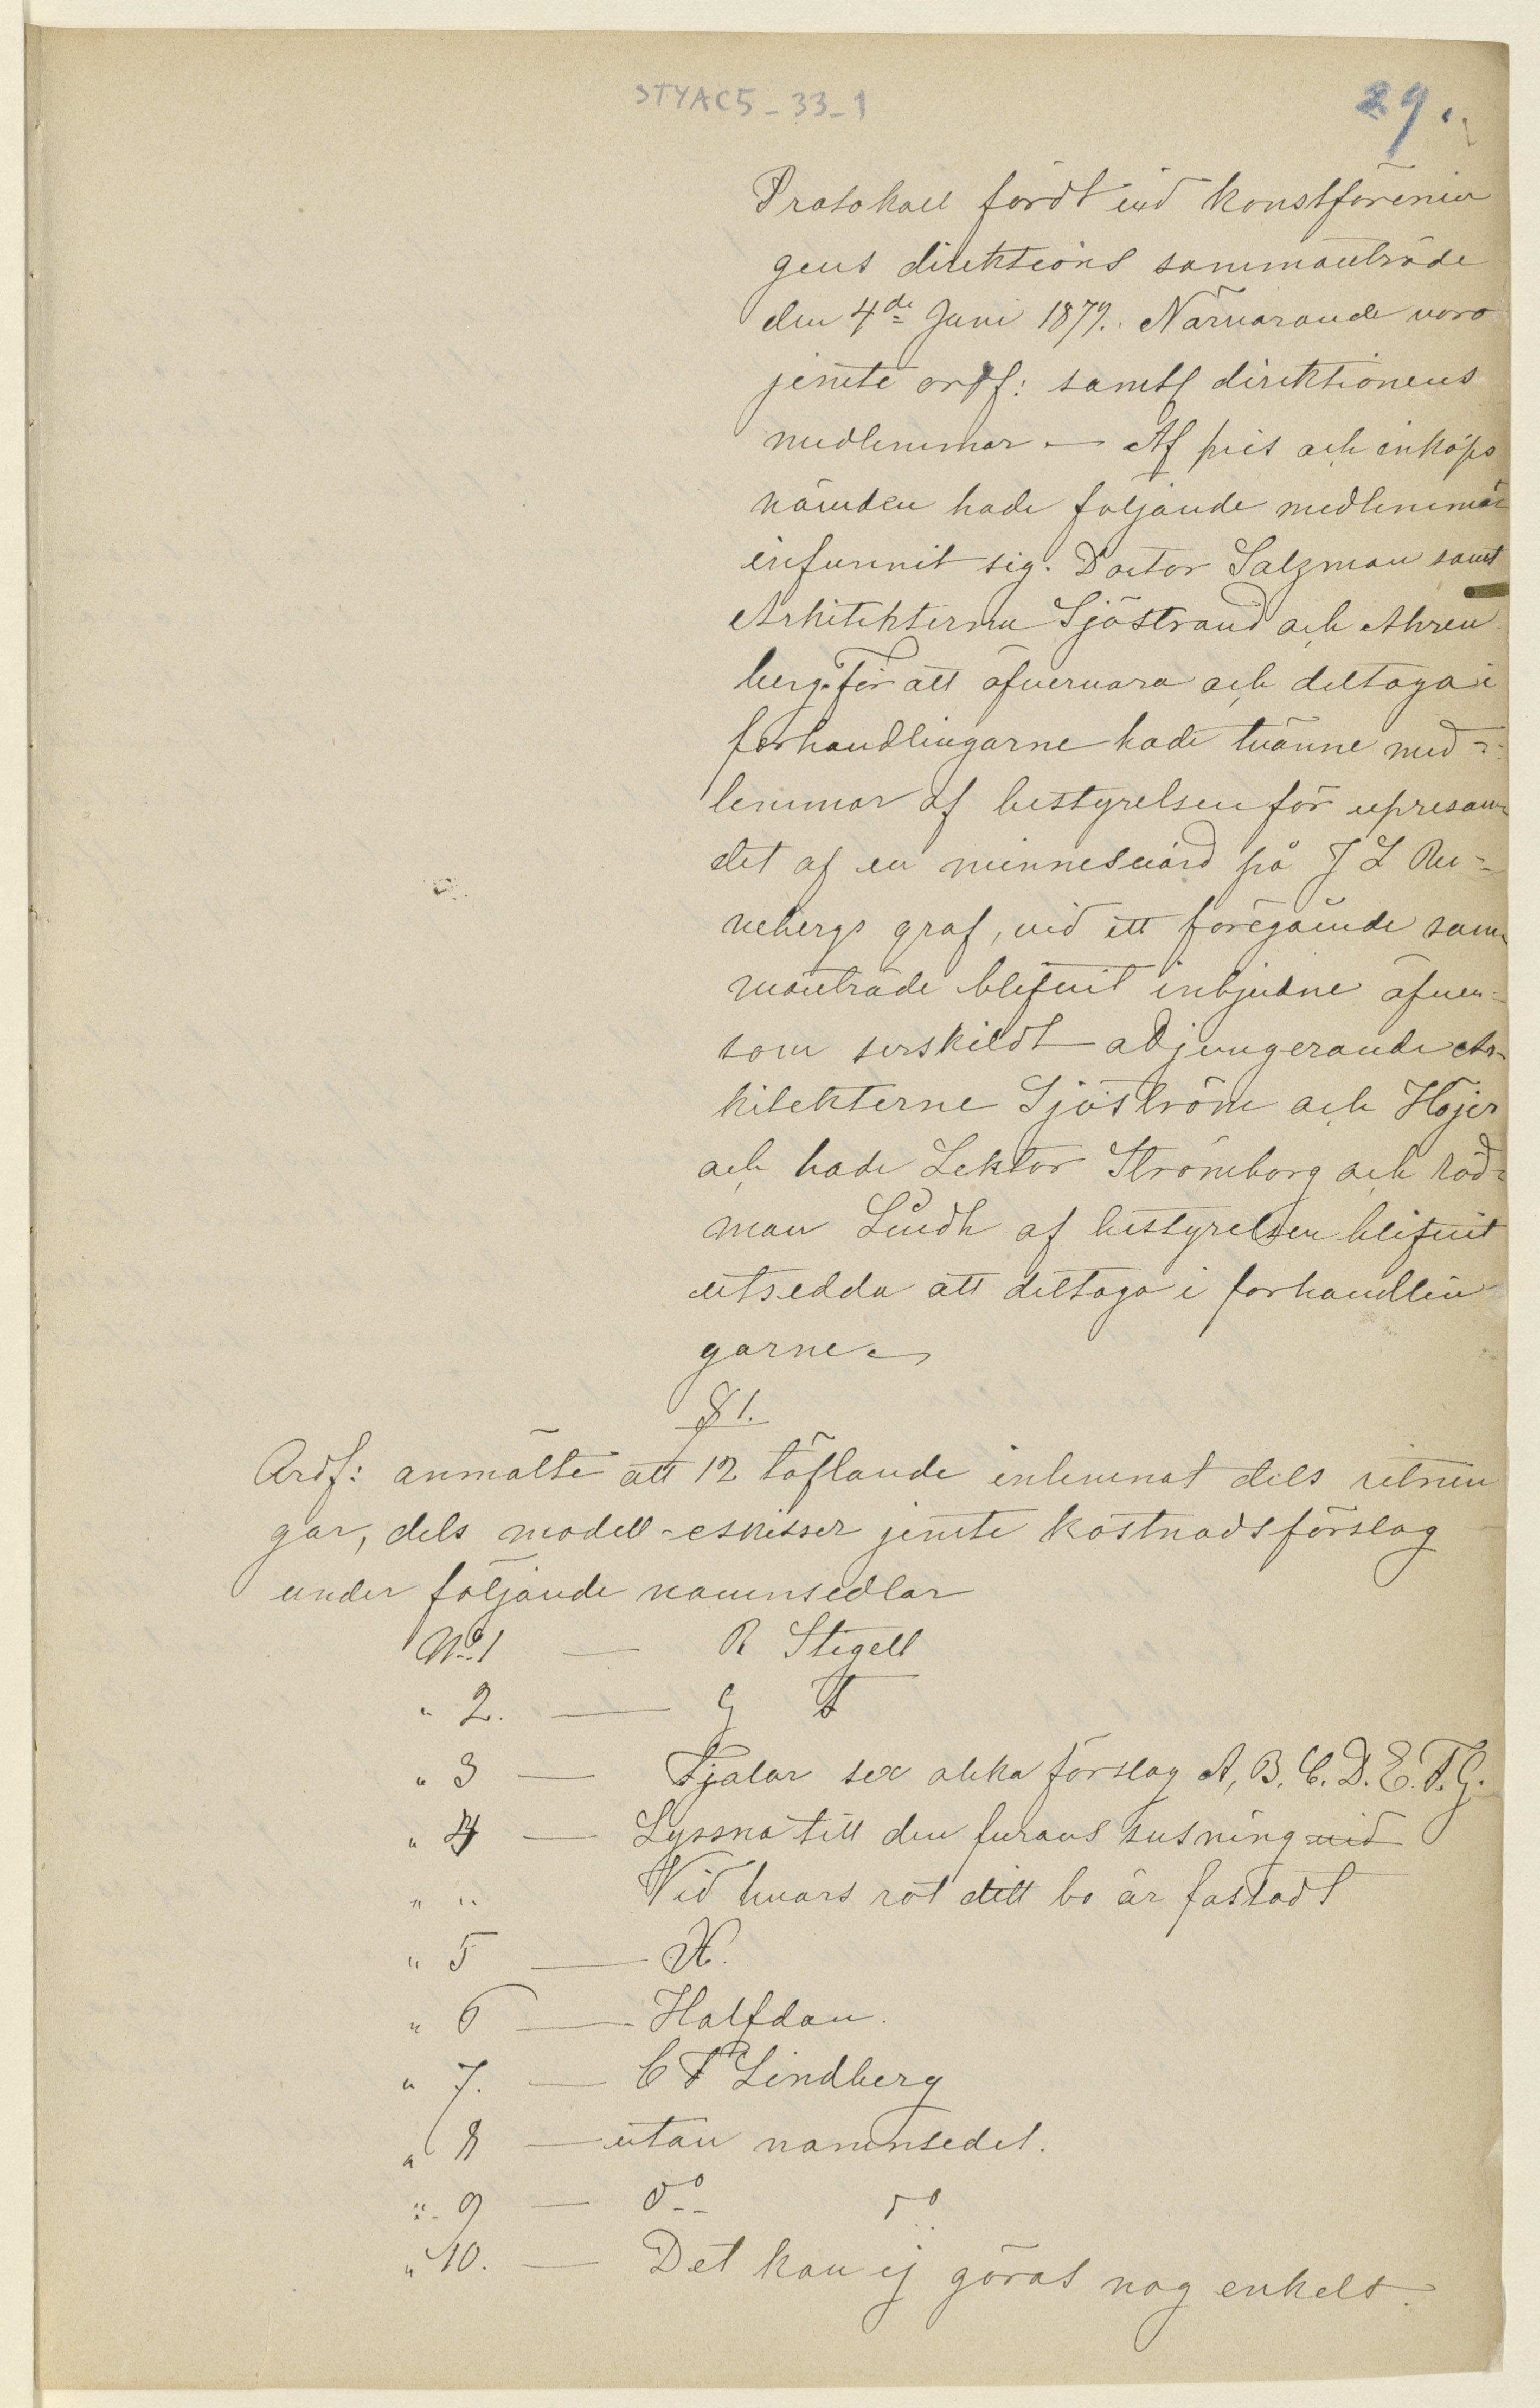 STYAC5_33_1
29.
Protokoll fördt vid konstförenin
gens direktions sammanträde
den 4de Juni 1879. Närvarande voro
jemte ordf: samtl direktionens
medlemmar — Af pris och inköps
nämden hade följande medlemmar
infunnit sig. Doctor Salzman samt
Arkitekterna Sjöstrand och Ahren
berg. För att öfvervara och deltaga i
förhandlingarne hade tvänne med=
lemmar af bestyrelsen för uppresan
det af en minnesvård på J L Ru=
nebergs graf, vid ett föregående sam
manträde blifvit inbjudne äfven=
som serskildt adjungerande Ar-
kitekterne Sjöström och Höjer
och hade Lektor Strömborg och råd=
man Lindh af bestyrelsen blifvit
utsedda att deltaga i förhandlin
garne
§ 1.
Ordf: anmälte att 12 täflande inlemnat dels ritnin
gar, dels modell-eskisser jemte kostnadsförslag
under följande namnsedlar
No 1 — R Stigell
" 2. — G A
" 3 — Fjalar sex olika förslag A, B, C. D. E. F. G.
" 4 — Lyssna till den furans susning vid
" " Vid hvars rot ditt bo är fästadt
" 5 — X.
" 6 — Halfdan.
" 7. — C F Lindberg
" 8 — utan namnsedel.
" 9 — do do
" 10. — Det kan ej göras nog enkelt.